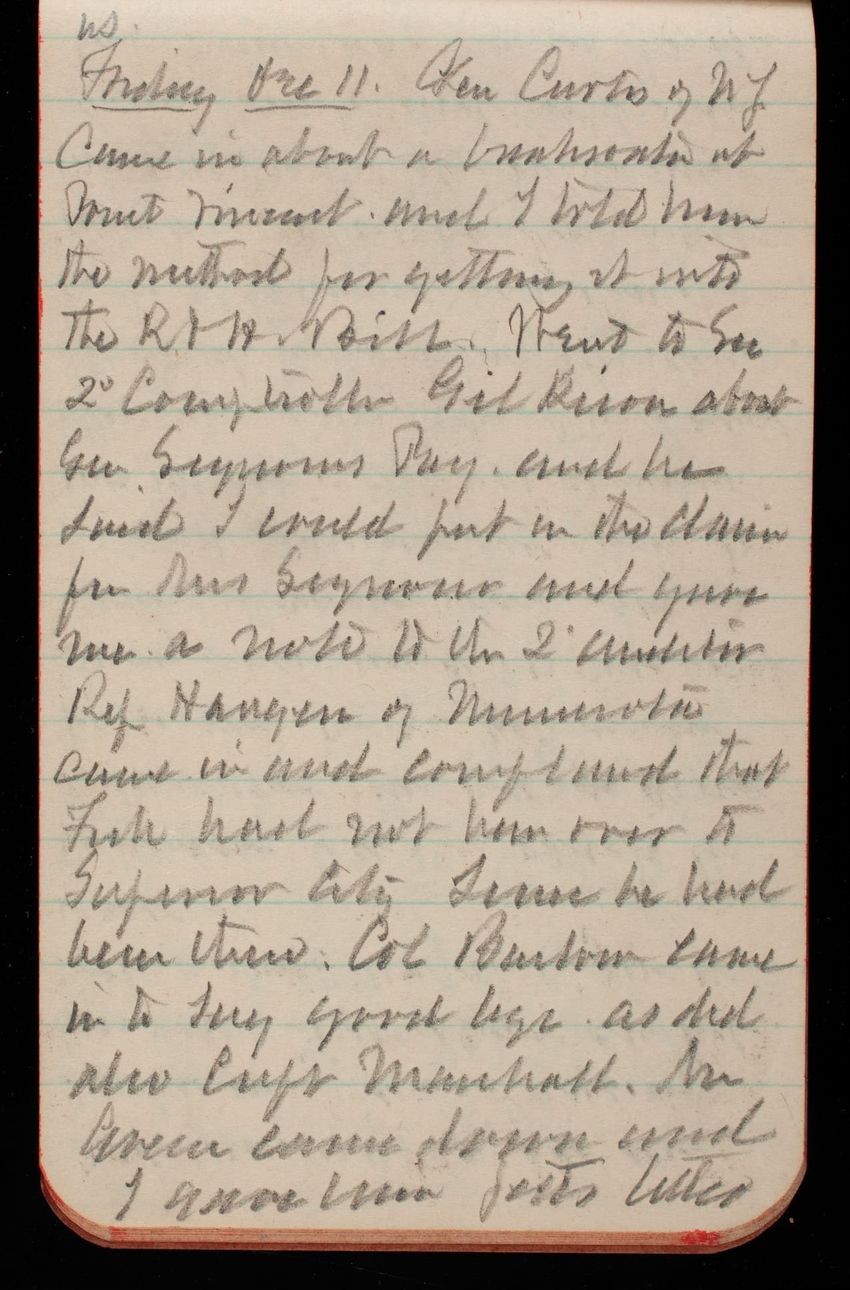 us.
Friday Dec 11. Gen Curtis of NY
Came in about a breakwater at
Point Vincent. and I told him
the method for getting it into
the R & H. Bill. Went to See
2° Comptroller Gilkison about
Gen Seymours Pay. and he
said I could put in the claim
for Mrs Seymour and gave
me a note to the 2° auditor
Rep Haugen of Minnesota
came in and complained that
Fisk had not been over to
Superior City Since he had
been there. Col Barlow came
in to say good bye. as did
also Capt Marshall. Mr
Green came down and
I gave him letter